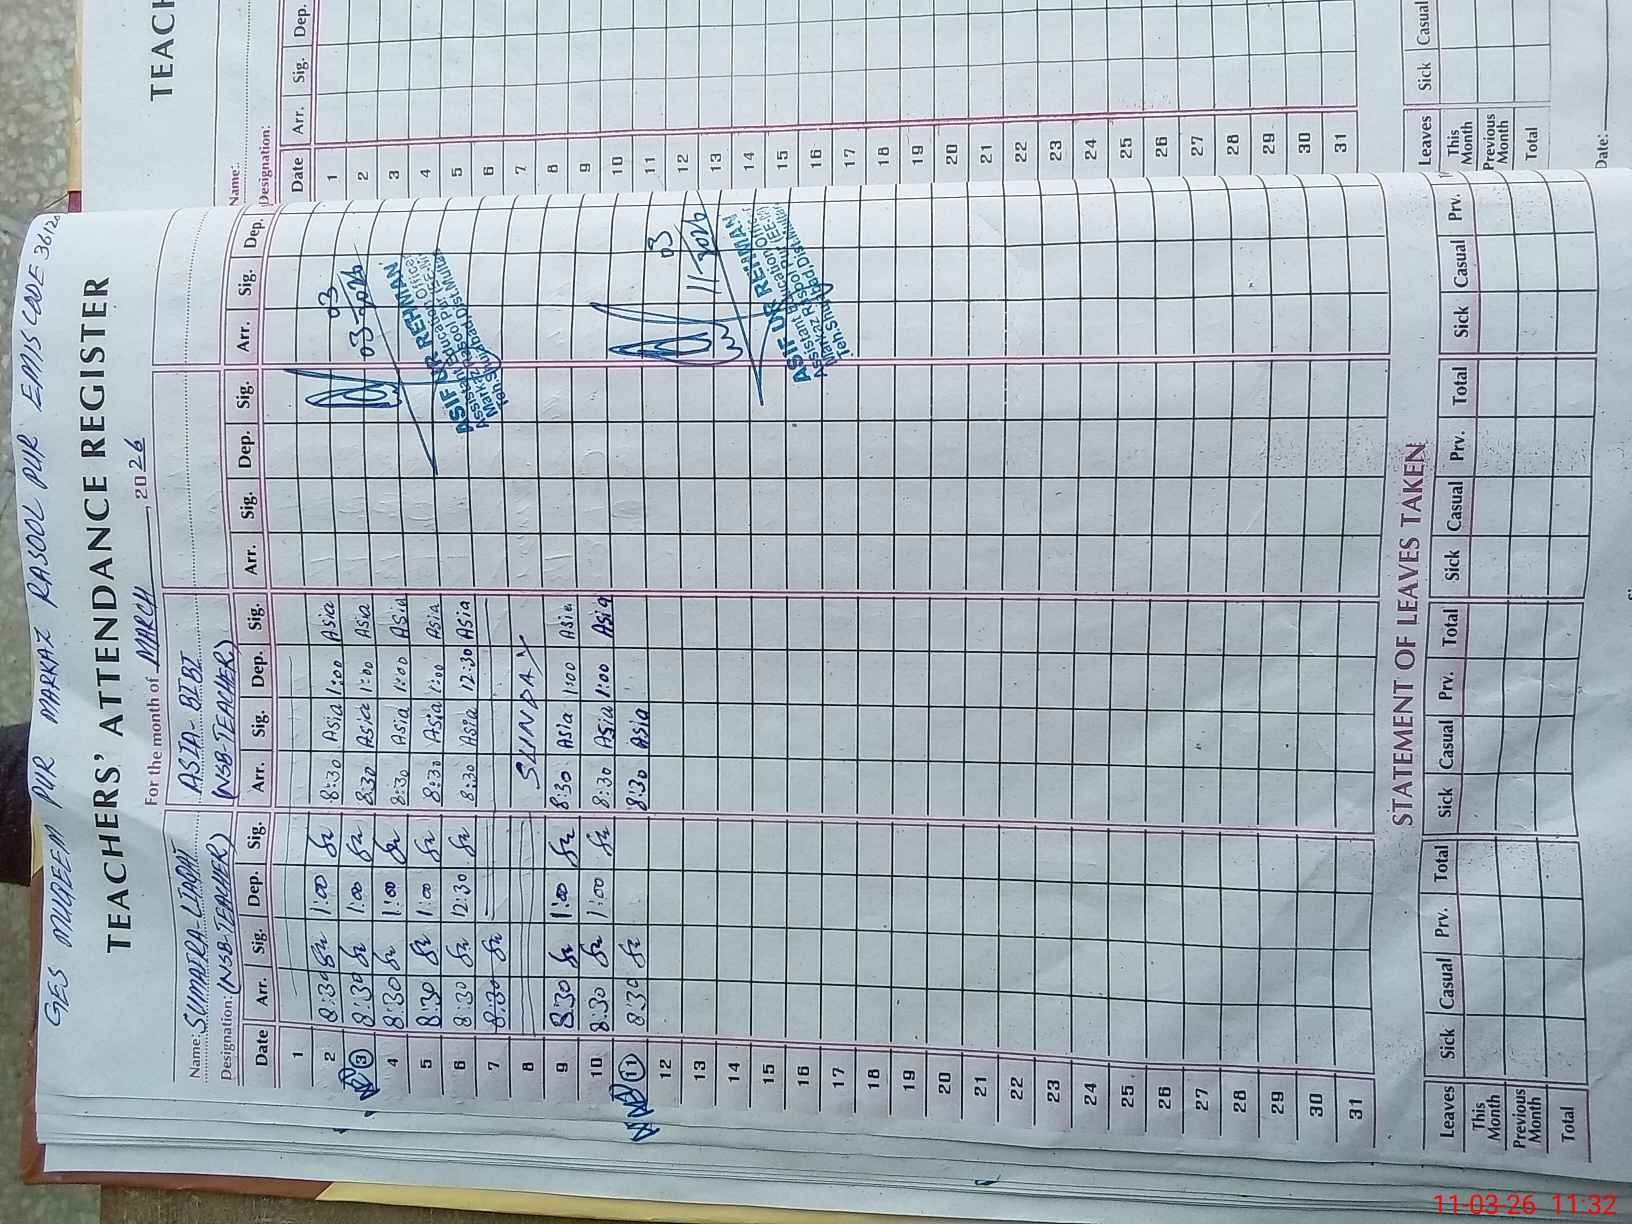 GES MUQEEM PUR MARKAZ RASOOL PUR EMIS CODE 36120
TEACHERS' ATTENDANCE REGISTER
For the month of MARCH, 2026
Name: SUMAIRA-LIAQAT ASIA-BIBI
Designation: (NSB-TEACHER) (NSB-TEACHER)
Date Arr. Sig. Dep. Sig. Arr. Sig. Dep. Sig. Arr. Sig. Dep. Sig. Arr. Sig. Dep.
1
2 8:30 1:00 8:30 Asia 1:00 Asia
3 8:30 1:00 8:30 Asia 1:00 Asia
4 8:30 1:00 8:30 Asia 1:00 Asia
5 8:30 1:00 8:30 Asia 1:00 Asia
6 8:30 12:30 8:30 Asia 12:30 Asia
7 8:30
8 SUNDAY
9 8:30 1:00 8:30 Asia 1:00 Asia
10 8:30 1:00 8:30 Asia 1:00 Asia
11 8:30 8:30 Asia
12
13
14
15
16
17
18
19
20
21
22
23
24
25
26
27
28
29
30
31
03
03-2026
ASIF UR REHMAN
Assistant Education Officer
Markaz Rasool Pur (EE-M)
Teh.Shujabad Dist.Multan
03
11-2026
ASIF UR REHMAN
Assistant Education Officer
Markaz Rasool Pur (EE-M)
Teh.Shujabad Dist.Multan
STATEMENT OF LEAVES TAKEN
Leaves Sick Casual Prv. Total Sick Casual Prv. Total Sick Casual Prv. Total Sick Casual Prv.
This Month
Previous Month
Total
TEACH
Name:
Designation:
Date Arr. Sig. Dep.
1
2
3
4
5
6
7
8
9
10
11
12
13
14
15
16
17
18
19
20
21
22
23
24
25
26
27
28
29
30
31
Leaves Sick Casual
This Month
Previous Month
Total
Date:
11-03-26 11:32